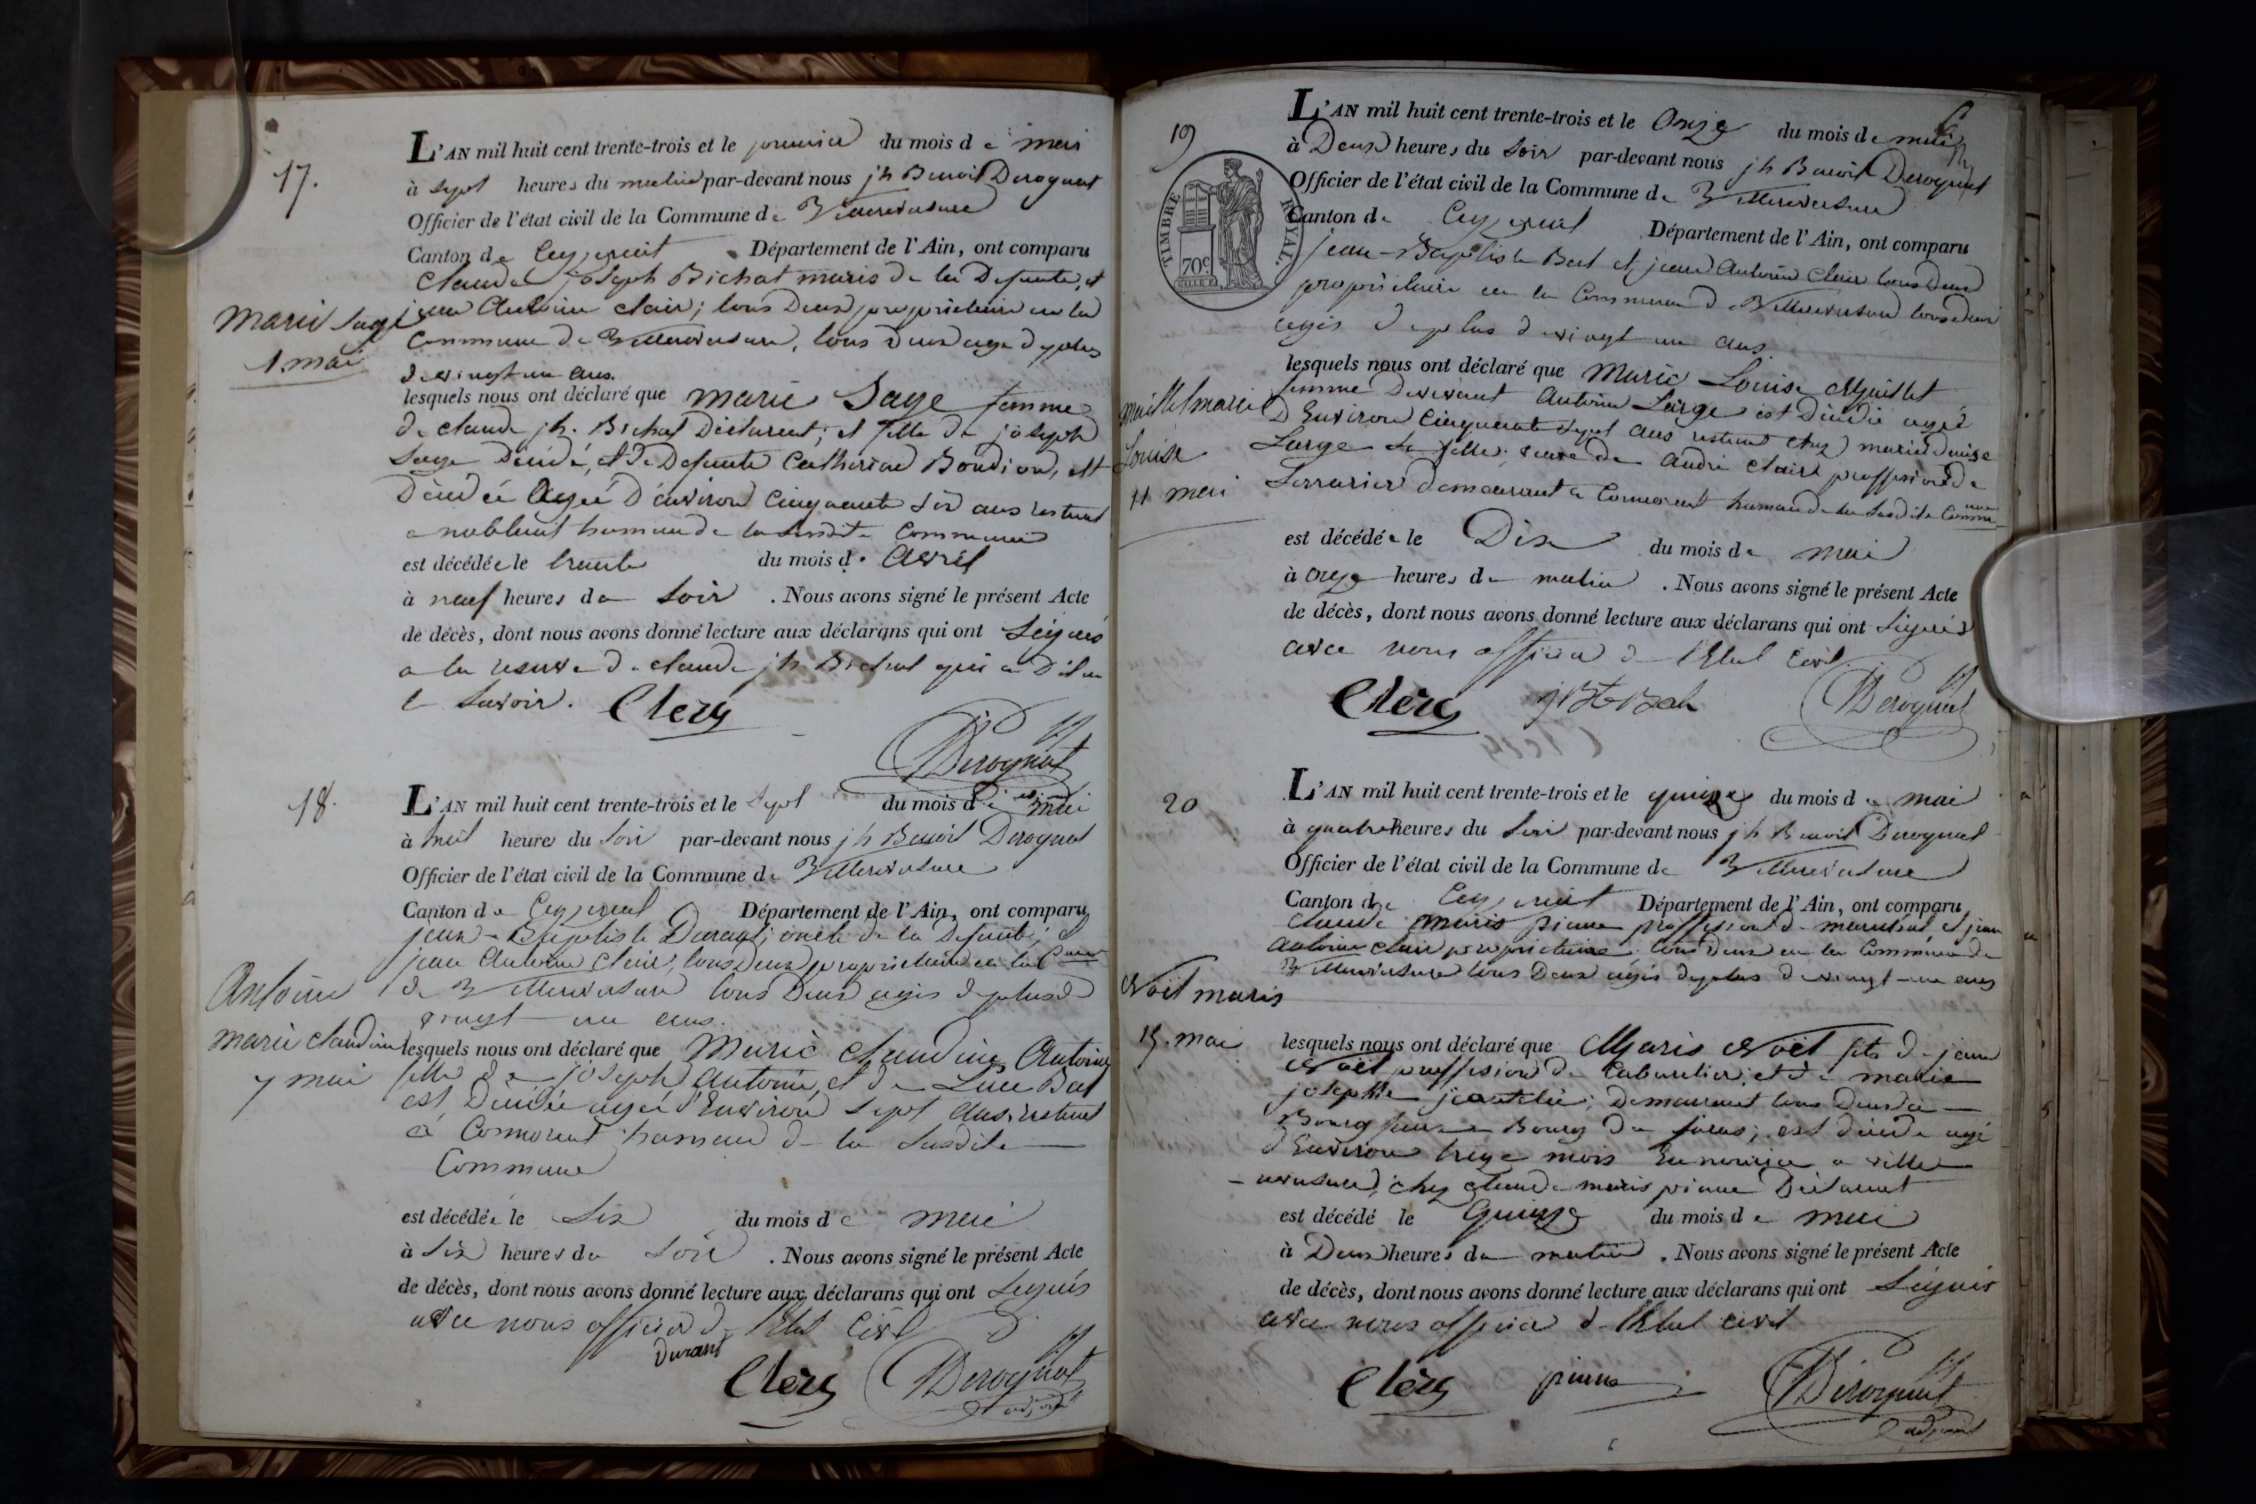 17.
L'AN mil huit cent trente-trois et le premier du mois de mai
à sept heures du matin par-devant nous jh Benoit Derognat
Officier de l'état civil de la Commune de Villereversure
Canton de Ceyzeriat Département de l'Ain, ont comparu
Claude joseph Bichat maris de la Defunte, et
jean Antoine Clair; tous Deux propriétaire en la
Commune de Villereversure, tous Deux age de plus
de vingt un ans.
Marie Sage
1 mai
lesquels nous ont déclaré que marie Sage femme
de Claude jh. Bichat Déclarent; et fille de joseph
Sage Décédé, et De Defunte Catherine, est
Décédée Agée D'environ Cinquante six ans restant
hameau de la susdite Commune
est décédée le trente du mois de Avril
à neuf heures du Soir. Nous avons signé le présent Acte
de décès, dont nous avons donné lecture aux déclarans qui ont Signés
a la reserve de Claude jh Bichat qui a Dit ne
le Savoir. Clerc
Derognat
18.
L'AN mil huit cent trente-trois et le Sept du mois de mai
à huit heures du Soir par-devant nous jh Benoit Derognat
Officier de l'état civil de la Commune de Villereversure
Canton de Ceyzeriat Département de l'Ain, ont comparu
jean-Baptiste Durand; oncle de la Defunte; et
jean Antoine Clair; tous Deux propriétaire en la Comne
de Villereversure tous Deux agés de plus de
vingt un ans.
Antoine
marie Claudine
7 mai
lesquels nous ont déclaré que Marie Claudine Antoine
fille de joseph Antoine, et de
est Décédée agée d'Environ Sept Ans, restant
à Cormorant hameau de la Susdite
Commune
est décédée le Six du mois de mai
à Six heures du Soir. Nous avons signé le présent Acte
de décès, dont nous avons donné lecture aux déclarans qui ont Signés
avec nous officier de l'Etat Civil
Durand
Clerc Derognat
adjoint
19
TIMBRE ROYAL
70c
L'AN mil huit cent trente-trois et le Onze du mois de mai
à Deux heures du Soir par-devant nous jh Benoit Derognat
Officier de l'état civil de la Commune de Villereversure
Canton de Ceyzeriat Département de l'Ain, ont comparu
jean-Baptiste et jean Antoine Clair tous Deux
propriétaire en la Commune de Villereversure tous deux
agés de plus de vingt un ans.
Louise
11 mai
lesquels nous ont déclaré que Marie Louise
femme De vivant Antoine Large est Décédée agée
D'Environ Cinquante Sept ans restant chez marie Denise
Large Sa fille; veuve de André Claire proffession de
Serrurier demeurant à Cormorant hameau de la Susdite Commune
est décédée le Dix du mois de mai
à onze heures du matin. Nous avons signé le présent Acte
de décès, dont nous avons donné lecture aux déclarans qui ont Signés
avec nous officier de l'Etat Civil.
Clerc Derognat
20
L'AN mil huit cent trente-trois et le quinze du mois de mai
à quatre heures du Soir par-devant nous jh Benoit Derognat
Officier de l'état civil de la Commune de Villereversure
Canton de Ceyzeriat Département de l'Ain, ont comparu
Claude Maris proffession de marechal et jean
Antoine Clair propriétaire tous Deux en la Commune de
Villereversure tous Deux agés de plus de vingt-un ans
Noël maris
15. mai
lesquels nous ont déclaré que Maris Noël fils de jean
Noël proffession de Cabaretier; et de marie
josephte; Demeurant tous Deux à
Bourg; est décédé agé
d'Environ treize mois En nourice a ville
-reversure, chez Claude maris Déclarant
est décédé le Quinze du mois de mai
à Deux heures du matin. Nous avons signé le présent Acte
de décès, dont nous avons donné lecture aux déclarans qui ont Signés
avec nous officier de l'Etat civil
Clerc Derognat
adjoint